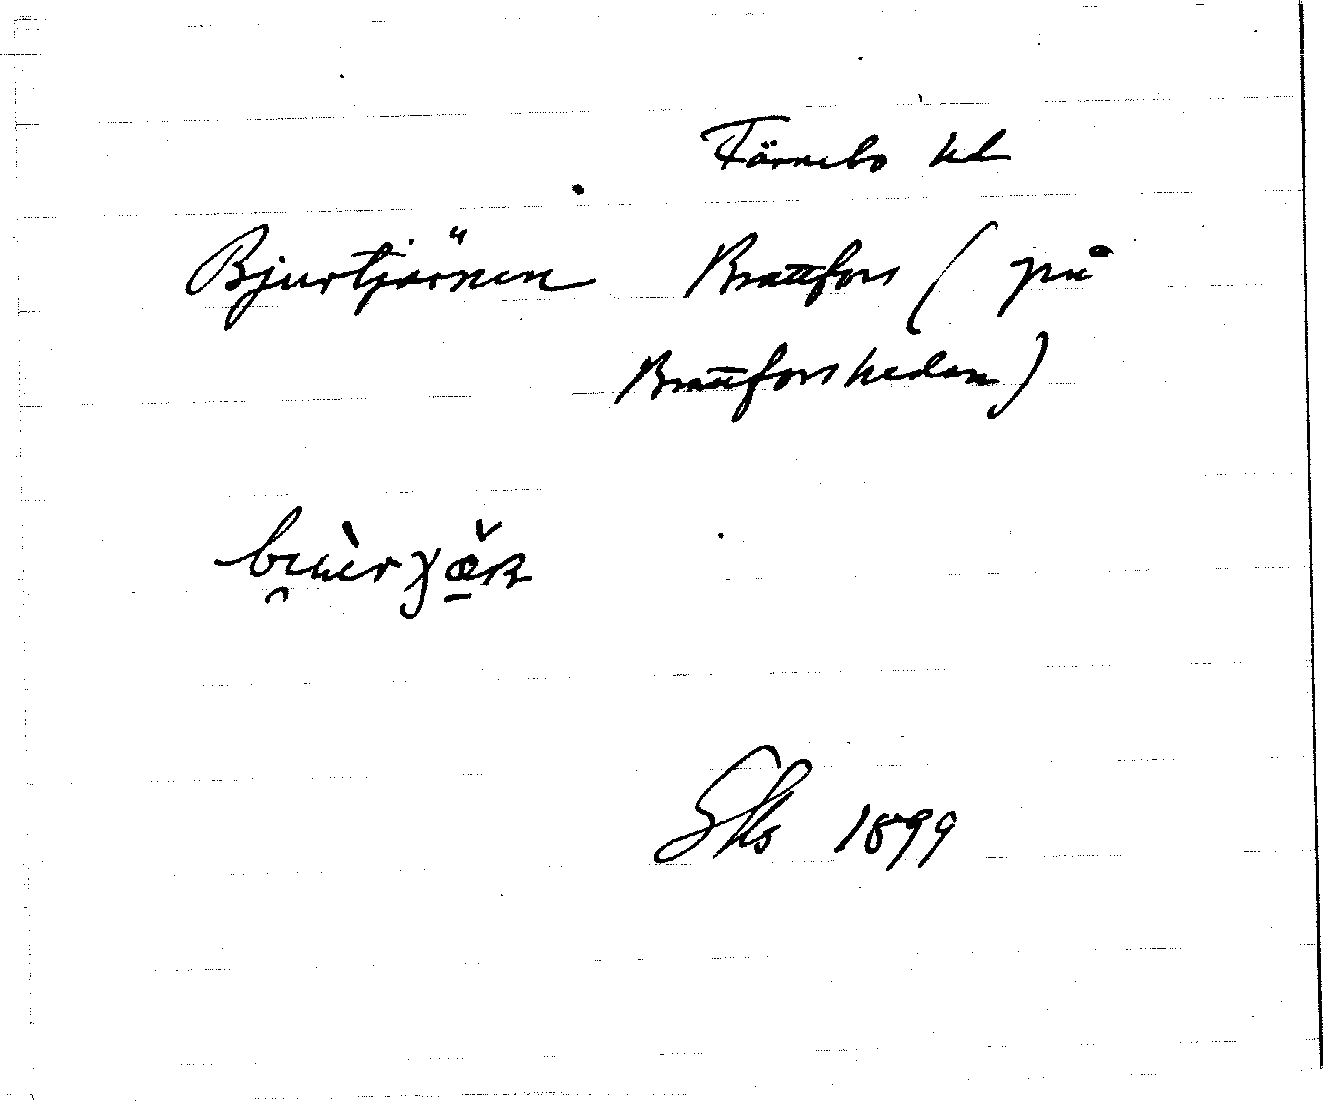 Färnebo hd
Bjurtjärnen Brattfors (på
Brattforsheden)
Sks 1899